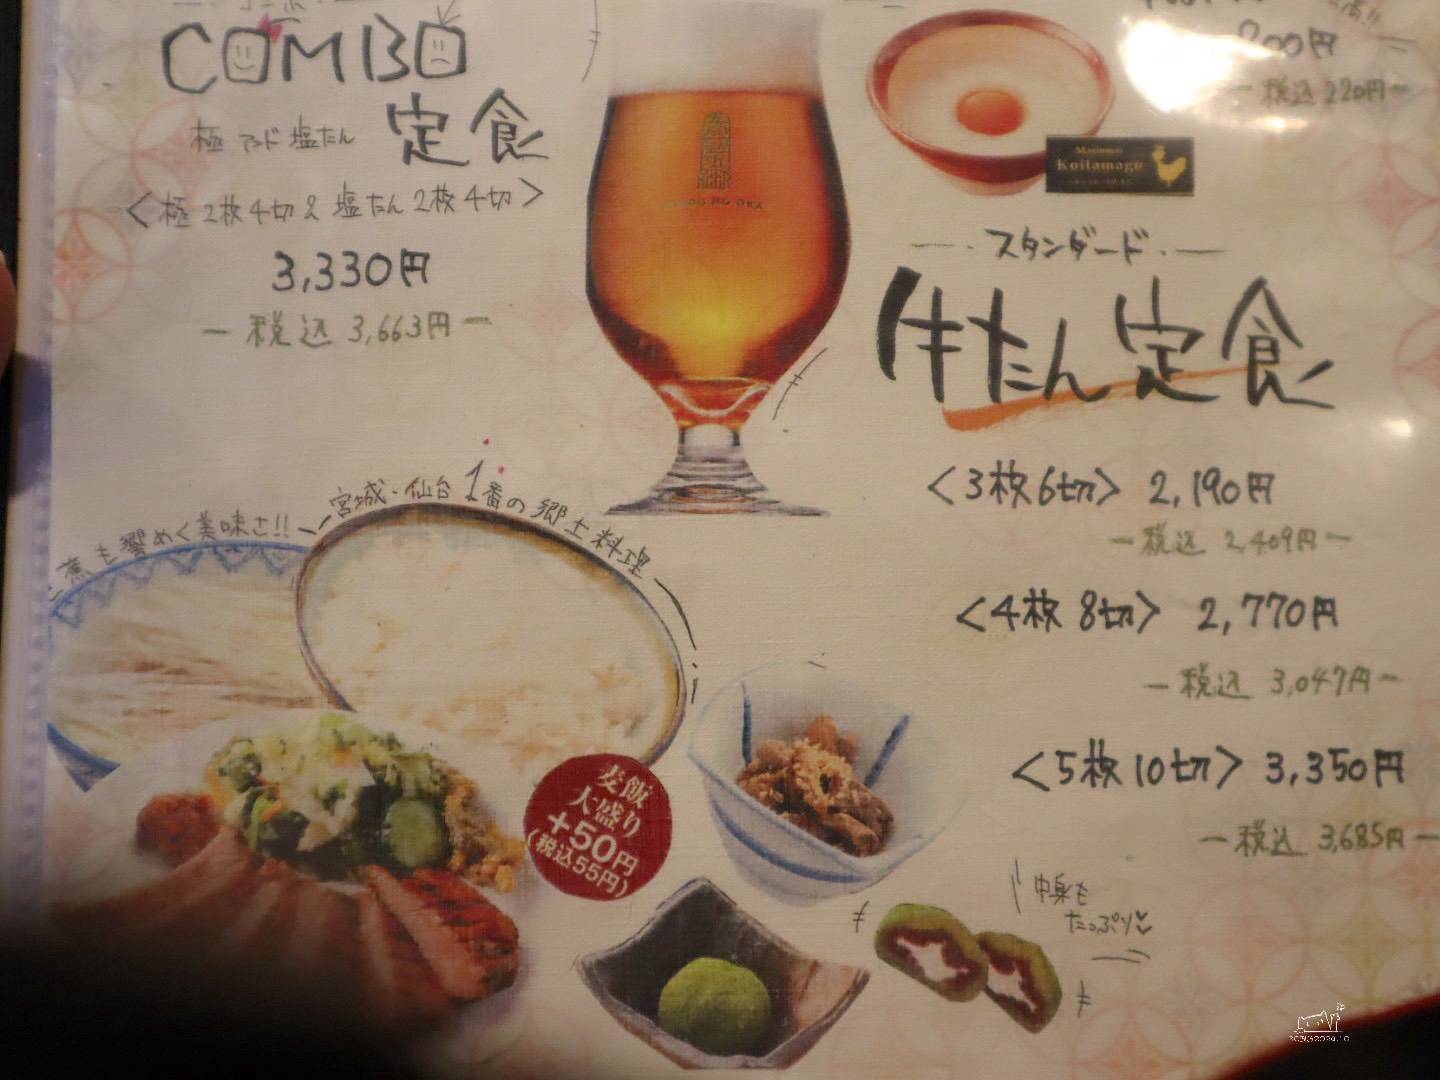 COMBO
極 アンド 塩たん 定食
<極 2枚4切 & 塩たん 2枚4切>
3,330円
ー 税込 3,663円 ー
200円
ー 税込 220円 ー
Koitamago
ー・スタンダード・ー
牛たん定食
<3枚6切> 2,190円
ー 税込 2,409円 ー
<4枚 8切> 2,770円
ー 税込 3,047円 ー
<5枚 10切> 3,350円
ー 税込 3,685円 ー
蕉も響めく美味さ!!
宮城・仙台 1番の郷土料理
麦飯
大盛り
+50円
(税込55円)
たっぷり♡